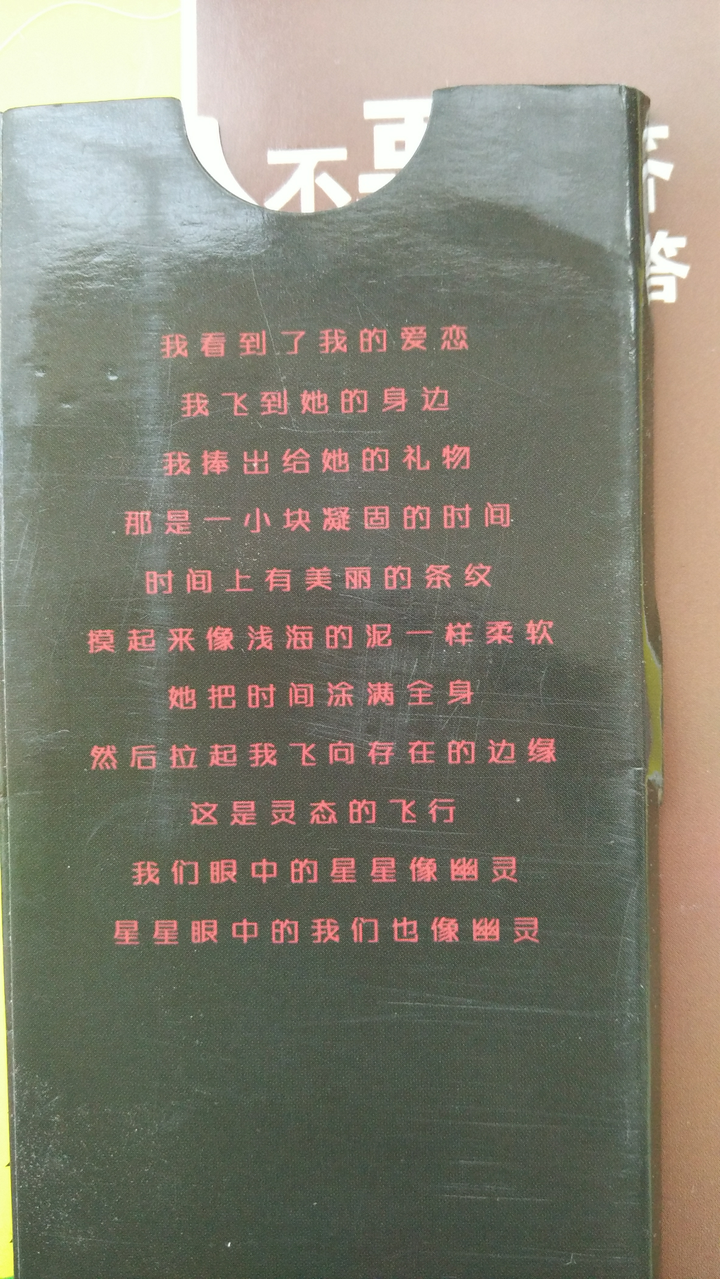 不要
答
答
我看到了我的爱恋
我飞到她的身边
我捧出给她的礼物
那是一小块凝固的时间
时间上有美丽的条纹
摸起来像浅海的泥一样柔软
她把时间涂满全身
然后拉起我飞向存在的边缘
这是灵态的飞行
我们眼中的星星像幽灵
星星眼中的我们也像幽灵